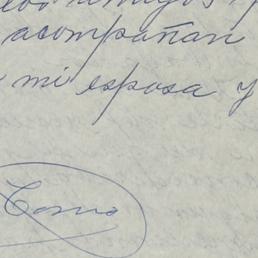 acompañan
mi esposa y
Como